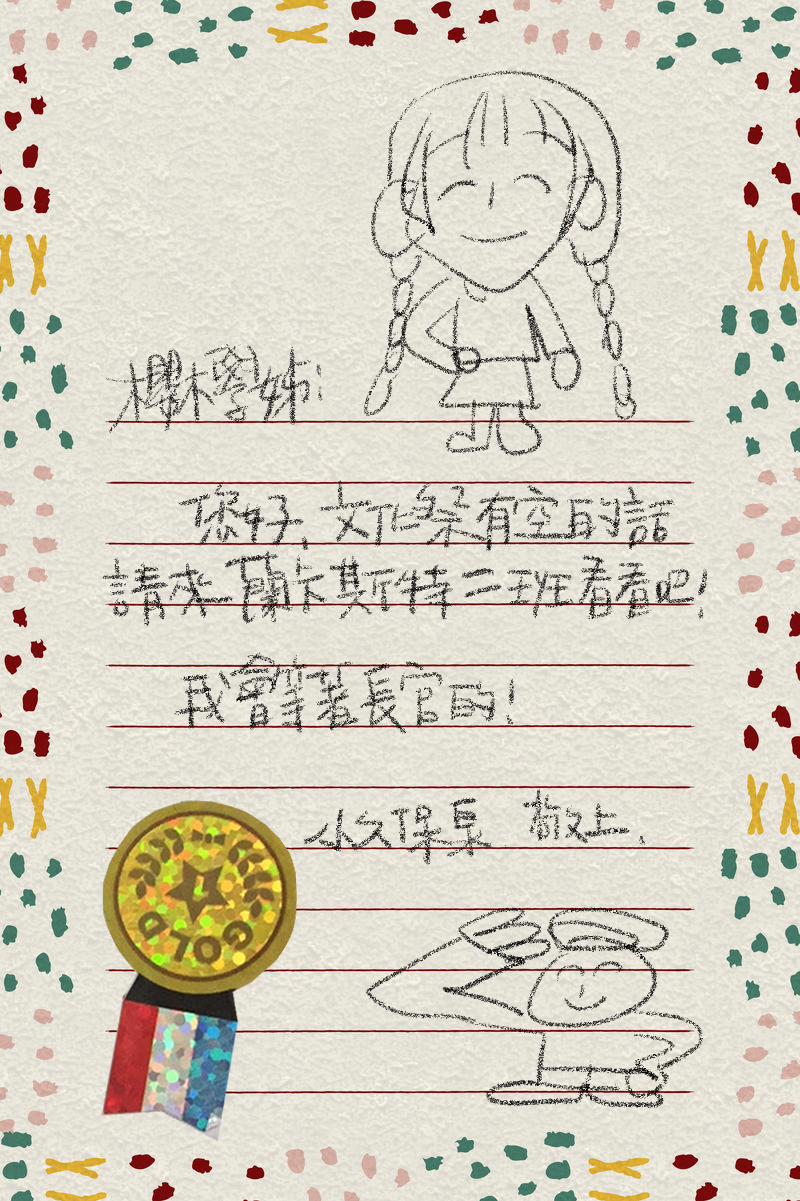 學姊:
您好、文化祭有空的話
請來蘭卡斯特二班看看吧!
我會等著長官的!
小久保梟 敬上、
GOLD